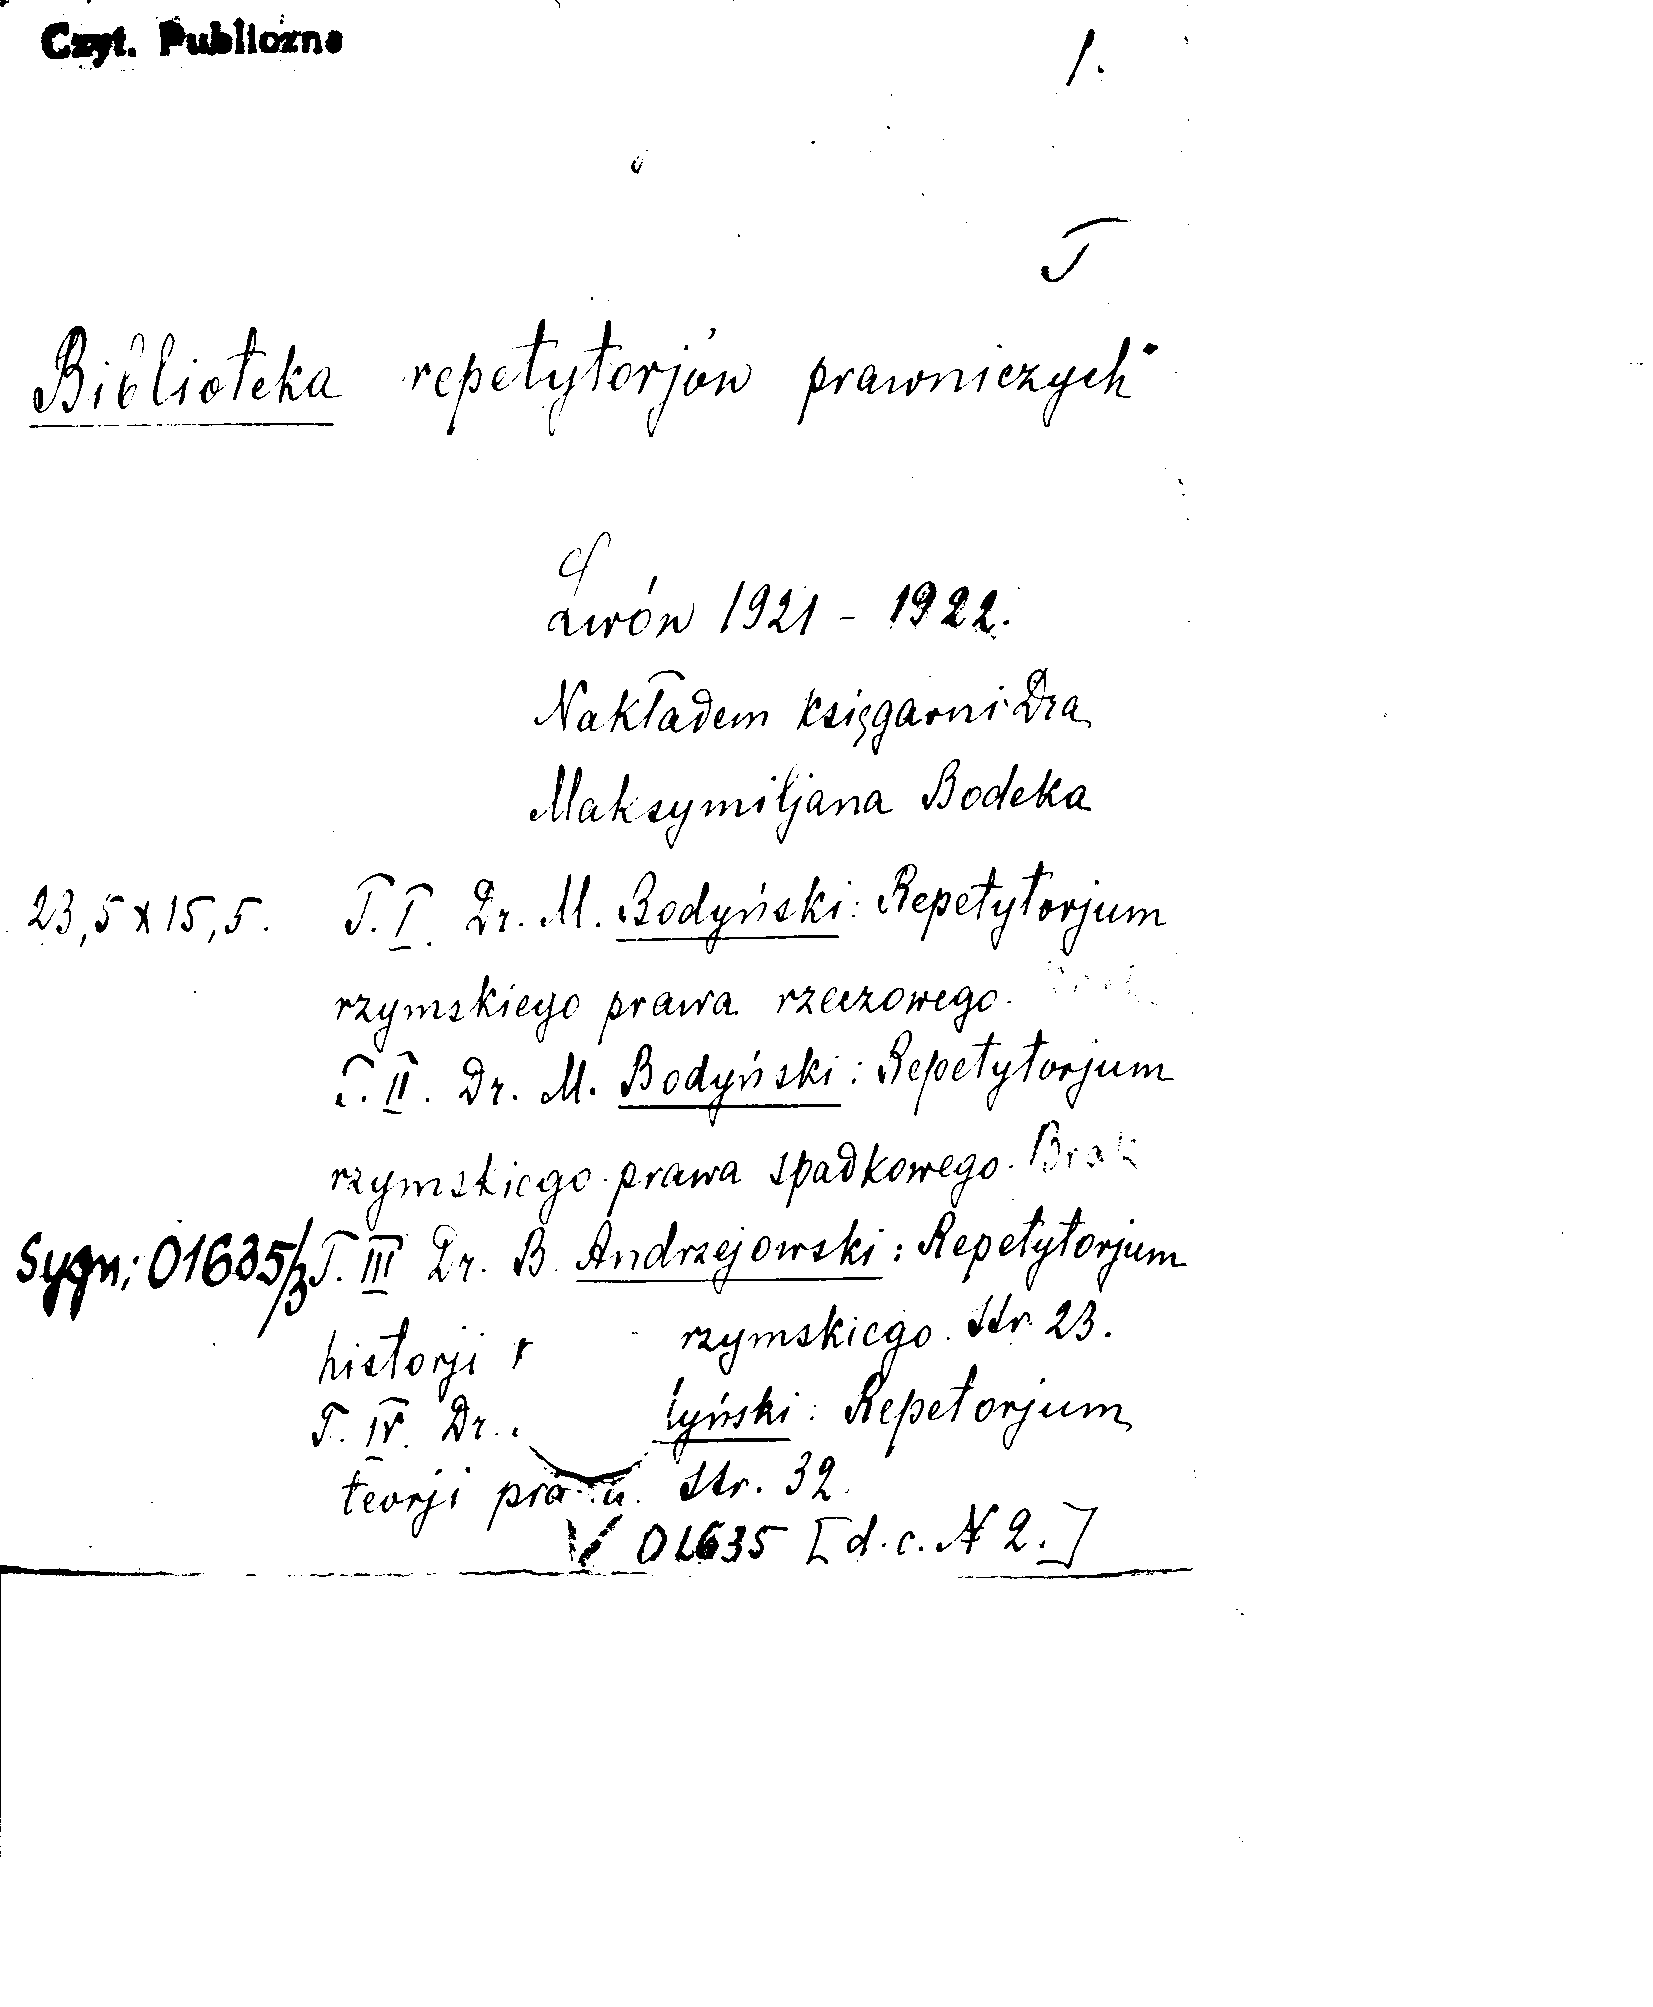 Czyt. Publiczne
1.
T
Biblioteka repetytorjów prawniczych"
Lwów 1921 - 1922.
Nakładem księgarni Dra
Maksymiljana Bodeka
23,5 x 15,5. T. I. Dr. M. Bodyński: Repetytorjum
rzymskiego prawa rzeczowego. Brak
T. II. Dr. M. Bodyński: Repetytorjum
rzymskiego prawa spadkowego. Brak
Sygn: 01635/3 T. III Dr. B. Andrzejowski: Repetytorjum
historji rzymskiego. Str. 23.
T. IV. Dr. yński: Repetorjum
teorji Str. 32.
V 01635 [d.c. N 2.]